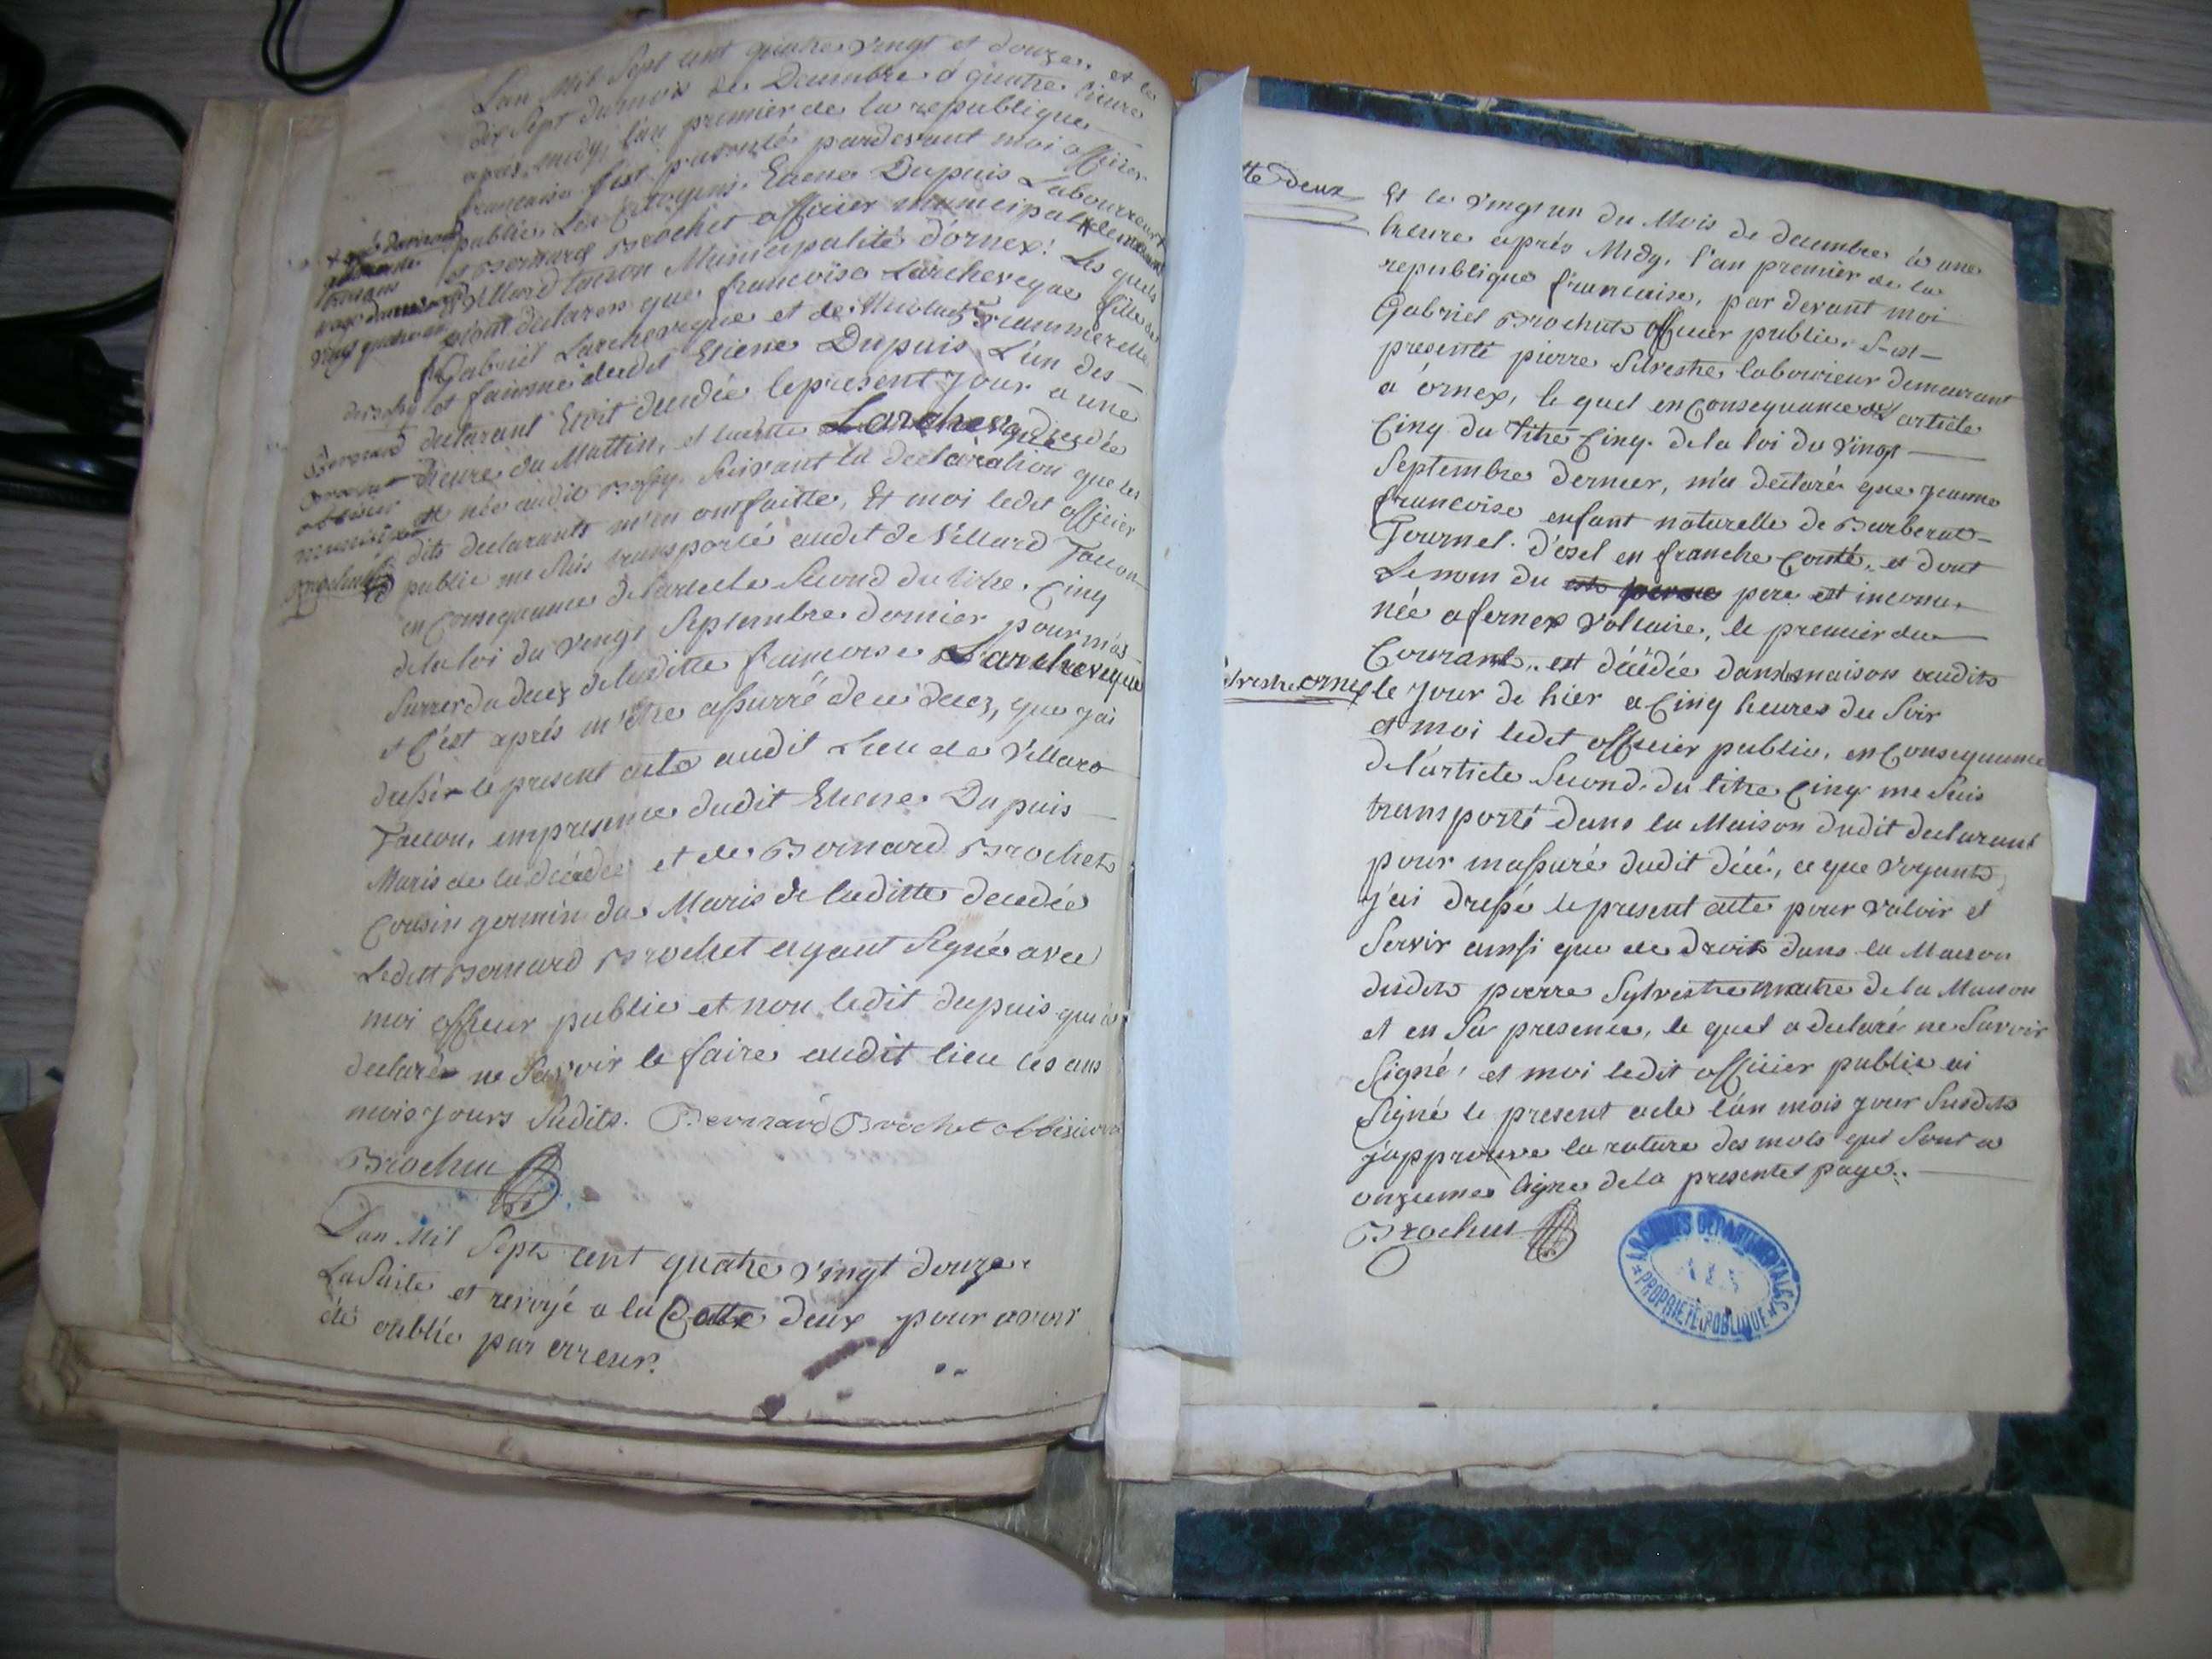 L'an Mil Sept cent quatre vingt et douze. et le
dix Sept du mois de Decembre à quatre heure
apres midy, l'an premier de la republique
francaise s'est presenté pardevant moi officier
public Les Citoyens Etiene Dupuis Laboureur
et Bernard Brochet officier municipal
Villard tacon Municipalité d'ornex. Les quels
m'ont declarés que francoise Larcheveque fille de
Gabriel Larcheveque et de
et famme dudit Etiene Dupuis L'un des
declarant Etoit decedée le present jour a une
heure du Mattin, et laditte Larcheveque decedée
née audit Suivant la declaration que les
dits declarants m'en ont faitte, Et moi ledit officier
public me Suis transporté audit de Villard Tacon
en Consequance de l'article Second du titre Cinq
de la loi du Vingt Septembre dernier pour m'as
surrer du decez de laditte francoise Larcheveque
et C'est après m'être assurré de ce decez, que j'ai
dressér le present acte audit Lieu de Villard
Taccon, en presence dudit Etiene Dupuis
Maris de la decedée et de Bernard Brochet
Cousin germin du Maris de laditte decedée
Ledit Bernard Brochet ayant Signé avec
moi officier public et non ledit dupuis qui a
declaré ne Savoir le faire audit lieu les ans
mois jours Sudits. Bernard Brochet officier
Brochut
L'an Mil Sept cent quatre vingt douze
La Suite et renvojé a la Cotte deux pour avoir
été oublié par erreur.
tte deux
Et le vingt un du Mois de decembre à une
heure après Midy. l'an premier de la
republique francaise, par devant moi
Gabriel Brochut officier public, s'est
presenté pierre Silvestre laboureur demeurant
a ornex, le quel en Consequance de l'article
Cinq du titre Cinq. de la loi du Vingt
Septembre dernier, m'a declaré que jeanne
francoise enfant naturelle de Barberat
Journel. d'esel en franche Comté, et dont
Le nom du pere est inconnu,
née a fernex Voltaire, le premier du
Courant, est décédée dans maison audit
lvestre ornex
le jour de hier a Cinq heures du Soir
et moi ledit officier public, en Consequance
de l'article Second du titre Cinq me Suis
transporté dans la Maison dudit declarant
pour massuré dudit décé, ce que voyant
j'ai dressé le present acte pour valoir et
Servir ainsi que de droit dans la Maison
dudit pierre Sylvestre maitre de la Maison
et en Sa presence, le quel a declaré ne Savoir
Signé, et moi ledit officier public ai
Signé le present acte l'an mois jour Susdits
j'approuve la rature des mots qui Sont a
onzieme ligne de la presente page.
Brochut
ARCHIVES DEPARTEMENTALES
AIN
PROPRIETE PUBLIQUE